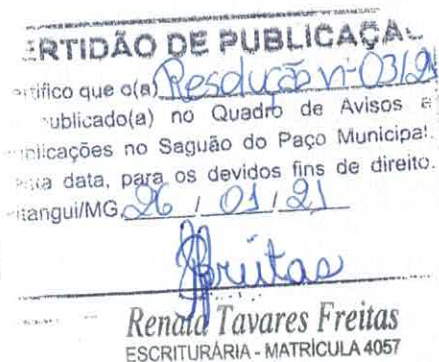 ERTIDÃO DE PUBLICAÇÃ
rtifico que o(a) Resolução nº 03/21
ublicado(a) no Quadro de Avisos e
ublicações no Saguão do Paço Municipal.
data, para os devidos fins de direito.
itangui/MG, 26 / 01 / 21
Freitas
Renata Tavares Freitas
ESCRITURÁRIA - MATRÍCULA 4057